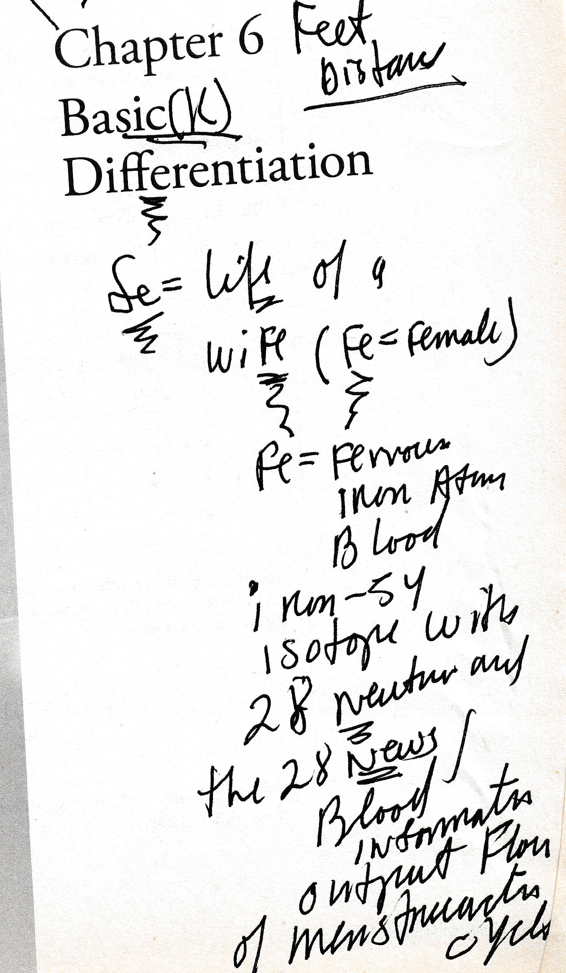 Chapter 6 Feet
Distance
Basic (K)
Differentiation
fe = life of a
wiFe (Fe = Female)
Fe = Ferrous
iron Atom
Blood
iron-54
isotope with
28 Neutron and
the 28 News /
Blood
information
output Flow
of menstruation
cycle